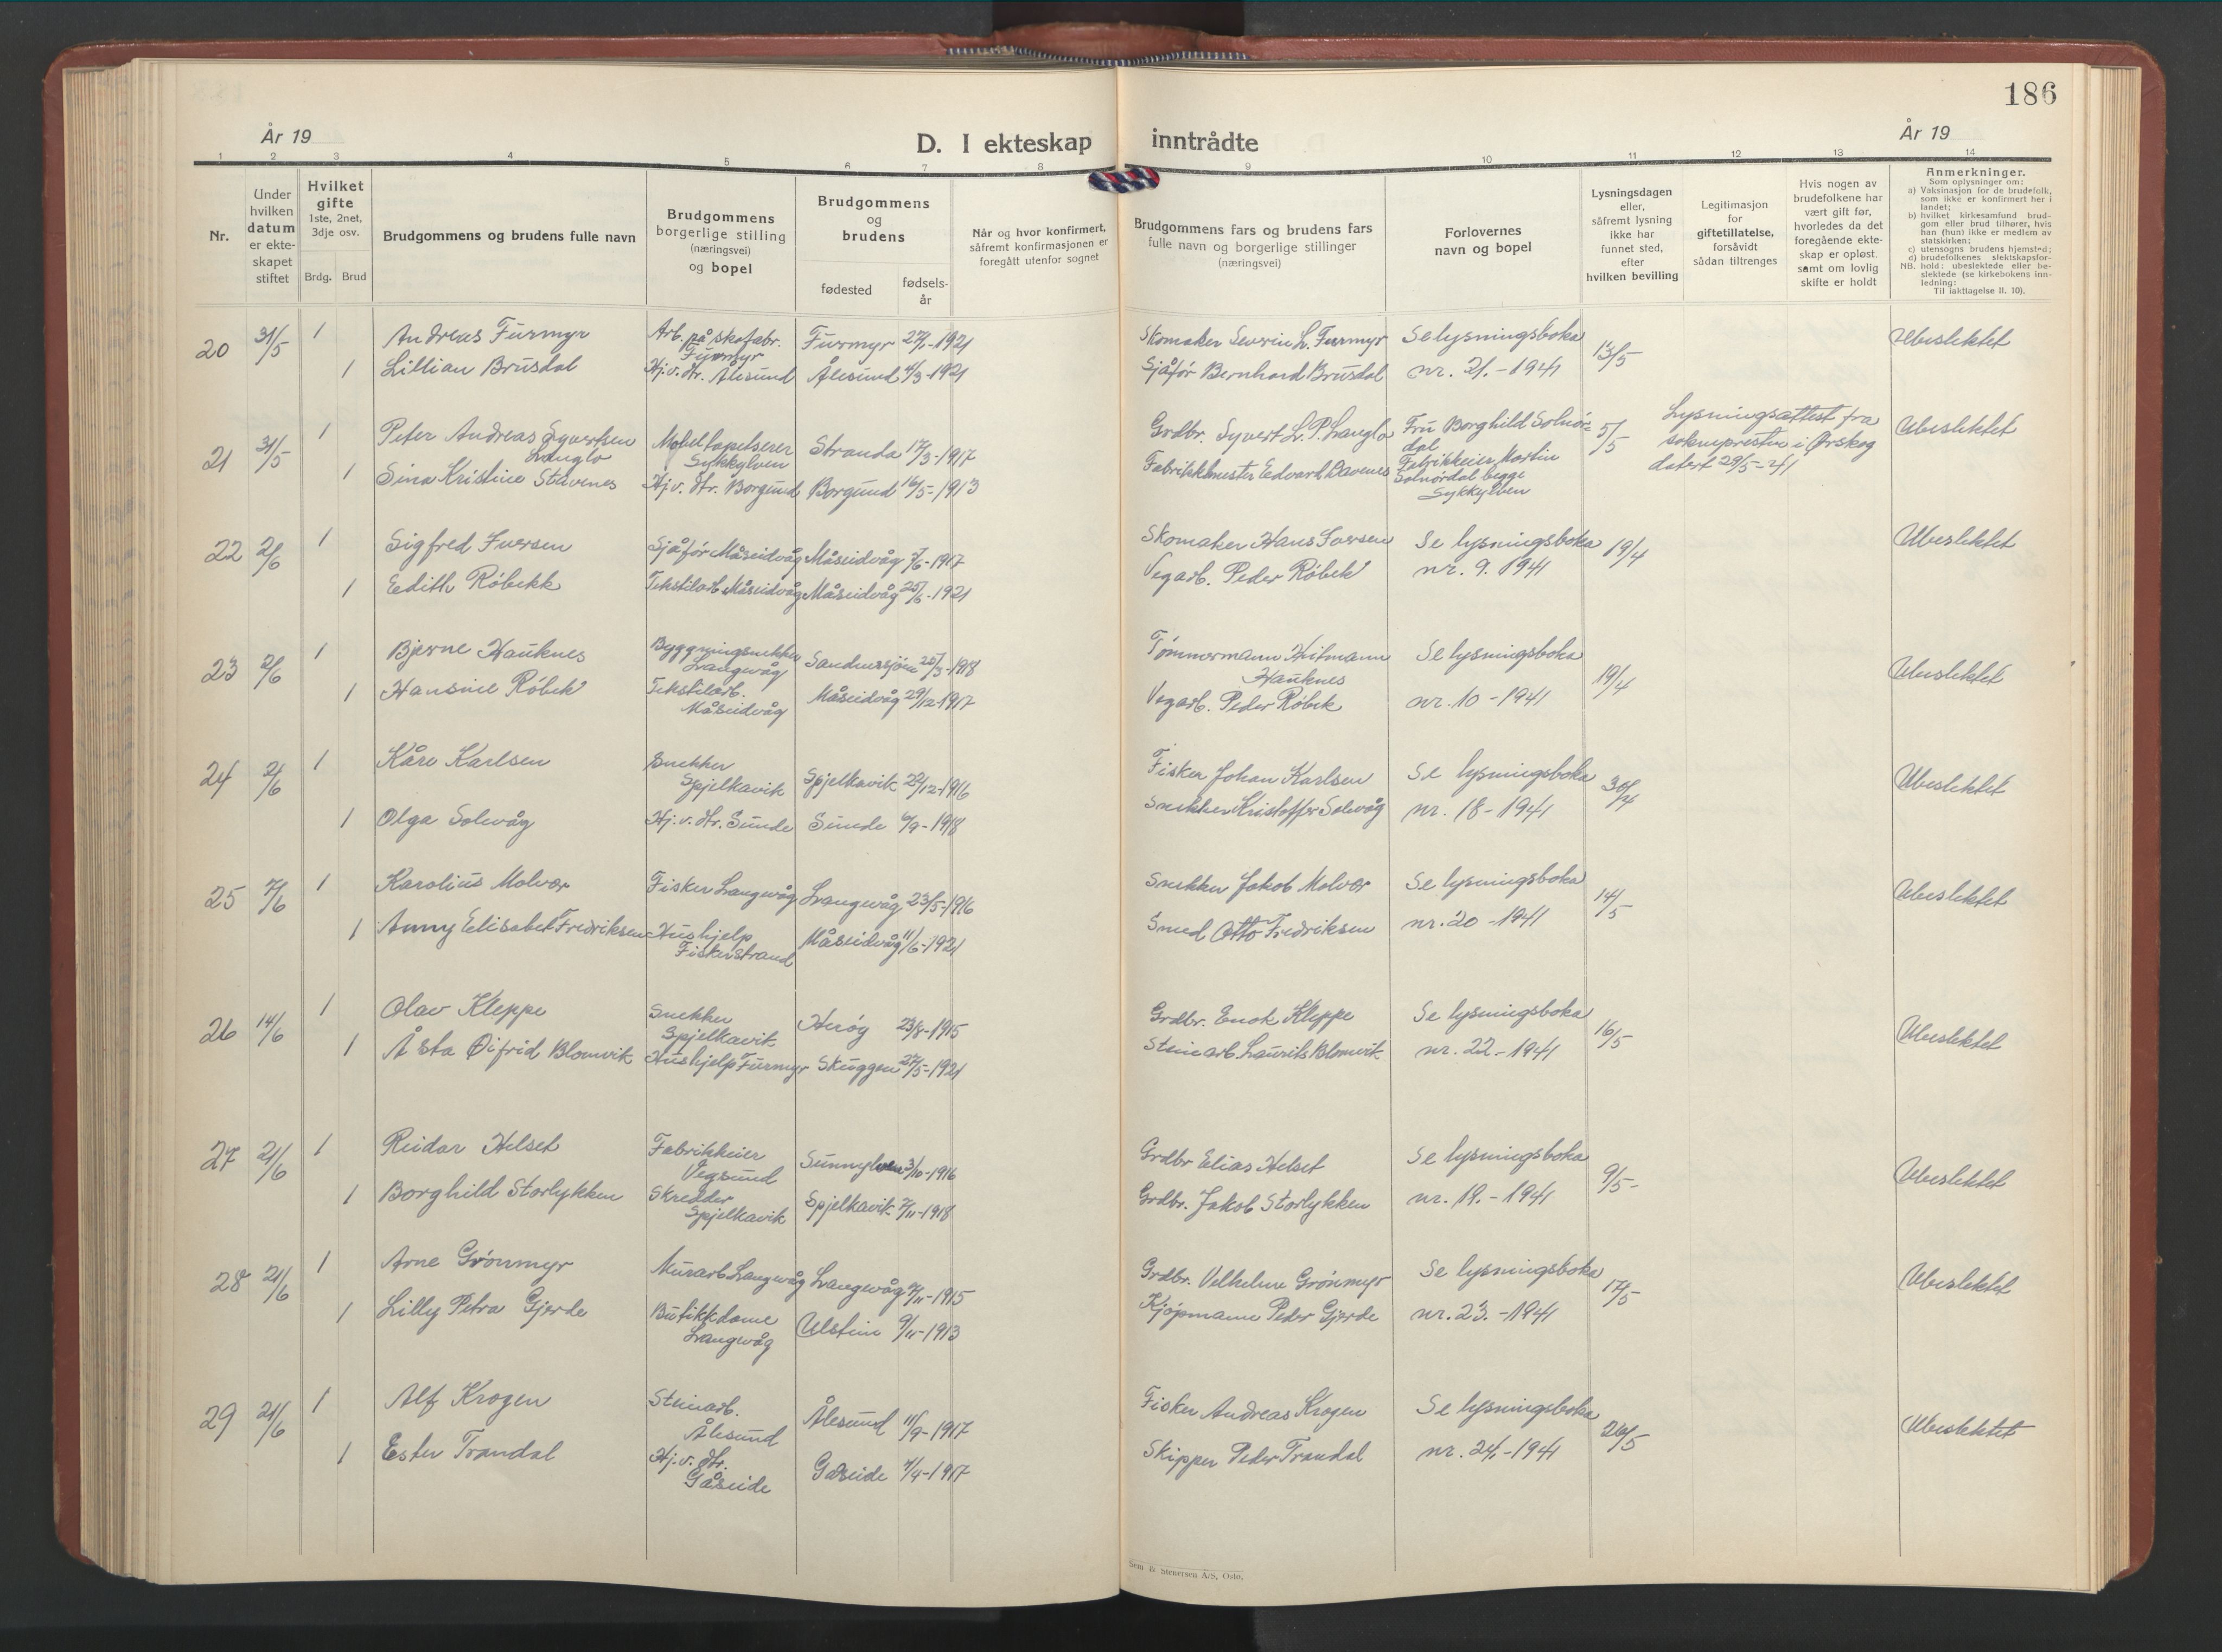 186
År 19
D. I ekteskap inntrådte
År 19
1 2 3 4 5 6 7 8 9 10 11 12 13 14
Nr.
Under hvilken datum er ekte-skapet stiftet
Hvilket gifte
1ste, 2net, 3dje osv.
Brdg. Brud
Brudgommens og brudens fulle navn
Brudgommens borgerlige stilling (næringsvei) og bopel
Brudgommens og brudens
fødested
fødsels-år
Når og hvor konfirmert, såfremt konfirmasjonen er foregått utenfor sognet
Brudgommens fars og brudens fars fulle navn og borgerlige stillinger (næringsvei)
Forlovernes navn og bopel
Lysningsdagen eller, såfremt lysning ikke har funnet sted, efter hvilken bevilling
Legitimasjon for giftetillatelse, forsåvidt sådan tiltrenges
Hvis nogen av brudefolkene har vært gift før, hvorledes da det foregående ekte-skap er opløst samt om lovlig skifte er holdt
Anmerkninger.
Som oplysninger om:
a) Vaksinasjon for de brudefolk, som ikke er konfirmert her i landet;
b) hvilket kirkesamfund brud-gom eller brud tilhører, hvis han (hun) ikke er medlem av statskirken;
c) utensogns brudens hjemsted;
d) brudefolkenes slektskapsfor-hold: ubeslektede eller be-slektede (se kirkebokens inn-ledning:
NB.
Til iakttagelse II. 10).
20 31/5 1 Andreas Furmyr Arb. på skofabr. Furmyr Furmyr 27/1-1921 Skomaker Severin L. Furmyr Se lysningsboka 13/5 Ubeslektet
1 Lillian Brusdal Hj.v. Hr. Ålesund Ålesund 4/3-1921 Sjåfør Bernhard Brusdal nr. 21.-1941
21 31/5 1 Peter Andreas Syvertsen Langlo Møbeltapetserer Sykkylven Stranda 17/3-1917 Grdbr. Syvert L. P. Langlo Fru Borghild Solnør-dal 5/5 Lysningsattest fra soknepresten i Ørskog datert 29/5-41 Ubeslektet
1 Sina Kristine Stavenes Hj.v. Hr. Borgund Borgund 16/5-1913 Fabrikkmester Edvard Stavenes Fabrikkeier Martin Solnørdal begge Sykkylven
22 2/6 1 Sigfred Iversen Sjåfør Måseidvåg Måseidvåg 7/6-1917 Skomaker Hans Iversen Se lysningsboka 19/4 Ubeslektet
1 Edith Røbekk Tekstilarb. Måseidvåg Måseidvåg 25/6-1921 Vegarb. Peder Røbek nr. 9. 1941
23 2/6 1 Bjarne Hauknes Byggningsnekker Langevåg Sandnessjøen 25/3-1918 Tømmermann Hitmann Hauknes Se lysningsboka 19/4 Ubeslektet
1 Hansine Røbek Tekstilarb. Måseidvåg Måseidvåg 29/12-1917 Vegarb. Peder Røbek nr. 10-1941
24 2/6 1 Kåre Karlsen Snekker Spjelkavik Spjelkavik 22/12-1916 Fisker Johan Karlsen Se lysningsboka 30/4 Ubeslektet
1 Olga Solevåg Hj.v. Hr. Sunde Sunde 6/9-1918 Snekker Kristoffer Solevåg nr. 18-1941
25 7/6 1 Karolius Molvær Fisker Langevåg Langevåg 23/5-1916 Snekker Jakob Molvær Se lysningsboka 14/5 Ubeslektet
1 Anny Elisabet Fredriksen Hushjelp Fiskerstrand Måseidvåg 11/6-1921 Smed Otto Fredriksen nr. 20-1941
26 14/6 1 Olav Kleppe Snekker Spjelkavik Herøy 23/8-1915 Grdbr. Enok Kleppe Se lysningsboka 16/5 Ubeslektet
1 Åsta Øifrid Blomvik Hushjelp Furmyr Skuggen 27/5-1921 Steinarb. Laurits Blomvik nr. 22.-1941
27 21/6 1 Reidar Helset Fabrikkeier Vegsund Sunnylven 3/10-1916 Grdbr Elias Helset Se lysningsboka 9/5- Ubeslektet
1 Borghild Storlykken Skredder Spjelkavik Spjelkavik 7/11-1918 Grdbr. Jakob Storlykken nr. 19.-1941
28 21/6 1 Arne Grønmyr Murarb Langevåg Langevåg 9/11-1915 Grdbr. Vilhelm Grønmyr Se lysningsboka 17/5 Ubeslektet
1 Lilly Petra Gjerde Butikkdame Langevåg Ulstein 9/11-1913 Kjøpmann Peder Gjerde nr. 23.-1941
29 21/6 1 Alf Krogen Steinarb. Ålesund Ålesund 11/9-1917 Fisker Andreas Krogen Se lysningsboka 26/5 Ubeslektet
1 Ester Trandal Hj.v. Hr. Gåseide Gåseide 4/4-1917 Skipper Peder Trandal nr. 24.-1941
Sem & Stenersen A/S, Oslo.